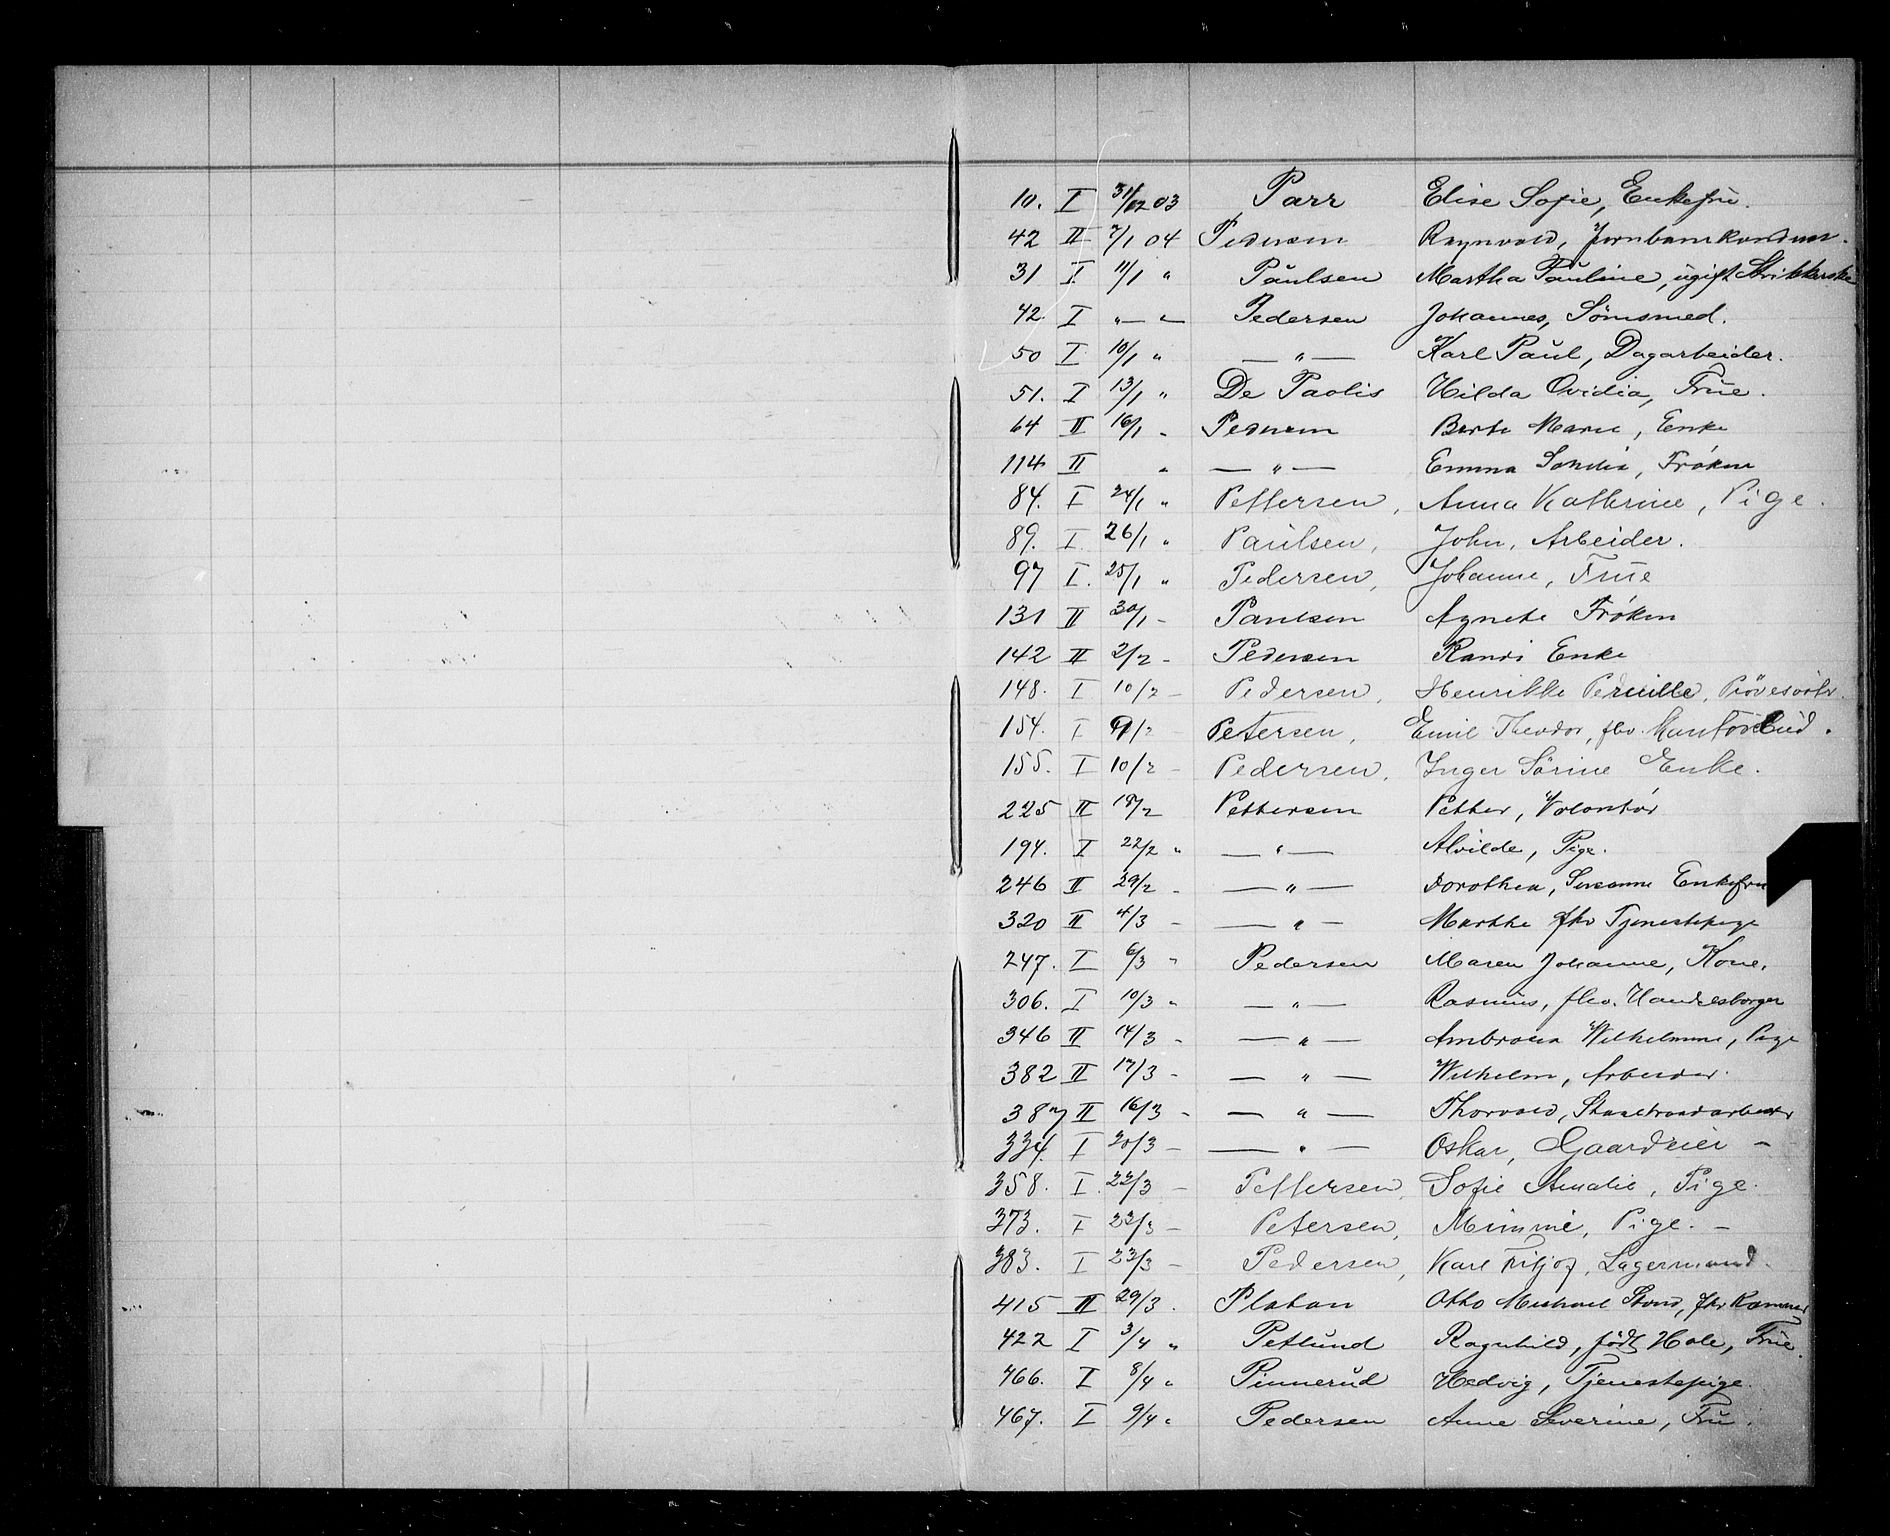 10. I 31/12 03 Parr Elise Sofie, Enkefru.
42 II 7/1 04 Pedersen Raynvald, Jernbanekonduct.
31 I 11/1 " Paulsen Martha Pauline, ugift Strikkerske
42. I "—"— Pedersen Johannes, Sömsmed.
50 I 10/1 " —"— Karl Paul, Dagarbeider.
51. I 13/1 " De Paolis Hilda Ovidia, Frue.
64 II 16/1 - Pedersen Berte Marie, Enke
114 II " —"— Emma, Frøken
84. I 24/1 " Pettersen, Anna Kathrine, Pige.
89. I 26/1 " Paulsen, John, Arbeider.
97 I. 25/1 " Pedersen, Johanne, Frue
131 II 30/1 - Paulsen Agnete Frøken
142 II 2/2 - Pedersen Randi Enke
148. I 10/2 - Pedersen, Henrikke Pernille,
154. I 9/2 Petersen, Emil Theodor, fhv. Kontorbud.
155. I 10/2 - Pedersen, Inger Sörine Enke.
225 II 18/2 Pettersen Petter, Volontør
194. I 22/2 " —"— Alvilde, Pige.
246 II 29/2 - —"— Dorothea, Susanne Enkefru
320 II 4/3 - —"— Marthe fhv Tjenestepige
247. I 6/3 " Pedersen Maren Johanne, Kone.
306. I 10/3 " —"— Rasmus, fhv. Handelsborger
346 II 14/3 - —"— Ambrosia Wilhelmine, Pige
382 II 17/3 - —"— Wilhelm, Arbeider.
387 II 16/3 - —"— Thorvald,
334. I 20/3 - —"— Oskar, Gaardeier -
358. I. 22/3 - Pettersen, Sofie Amalie, Pige.
373. I 22/3 - Petersen, Mimmi, Pige. -
383. I 23/3 - Pedersen, Karl Fritjof, Lagermand.
415 II 29/3. Platou Otto Michael, fhv
422 I 3/4 " Petlund Ragnhild, født Hole, Frue.
466. I 8/4 " Pinnerud Hedvig, Tjenestepige.
467. I 9/4 " Pedersen Anne Severine, Fru.